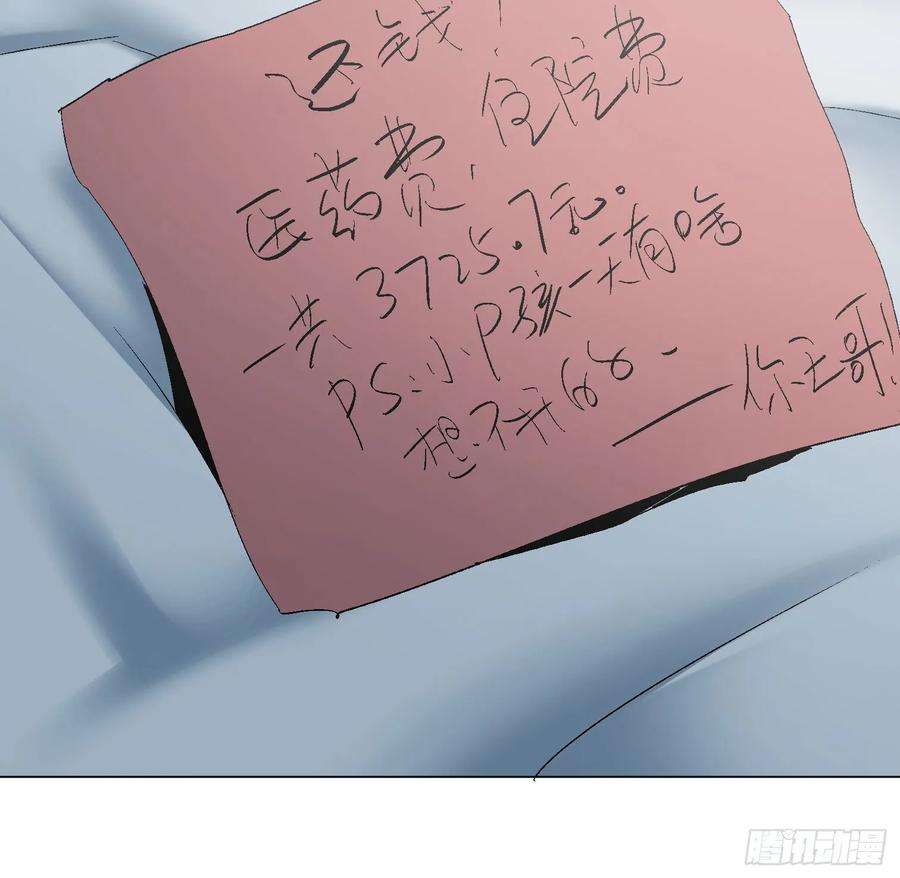 还钱！
医药费，住院费
一共3725.7元。
PS：小P孩一天有啥
想不开的。
——你王哥！
腾讯动漫